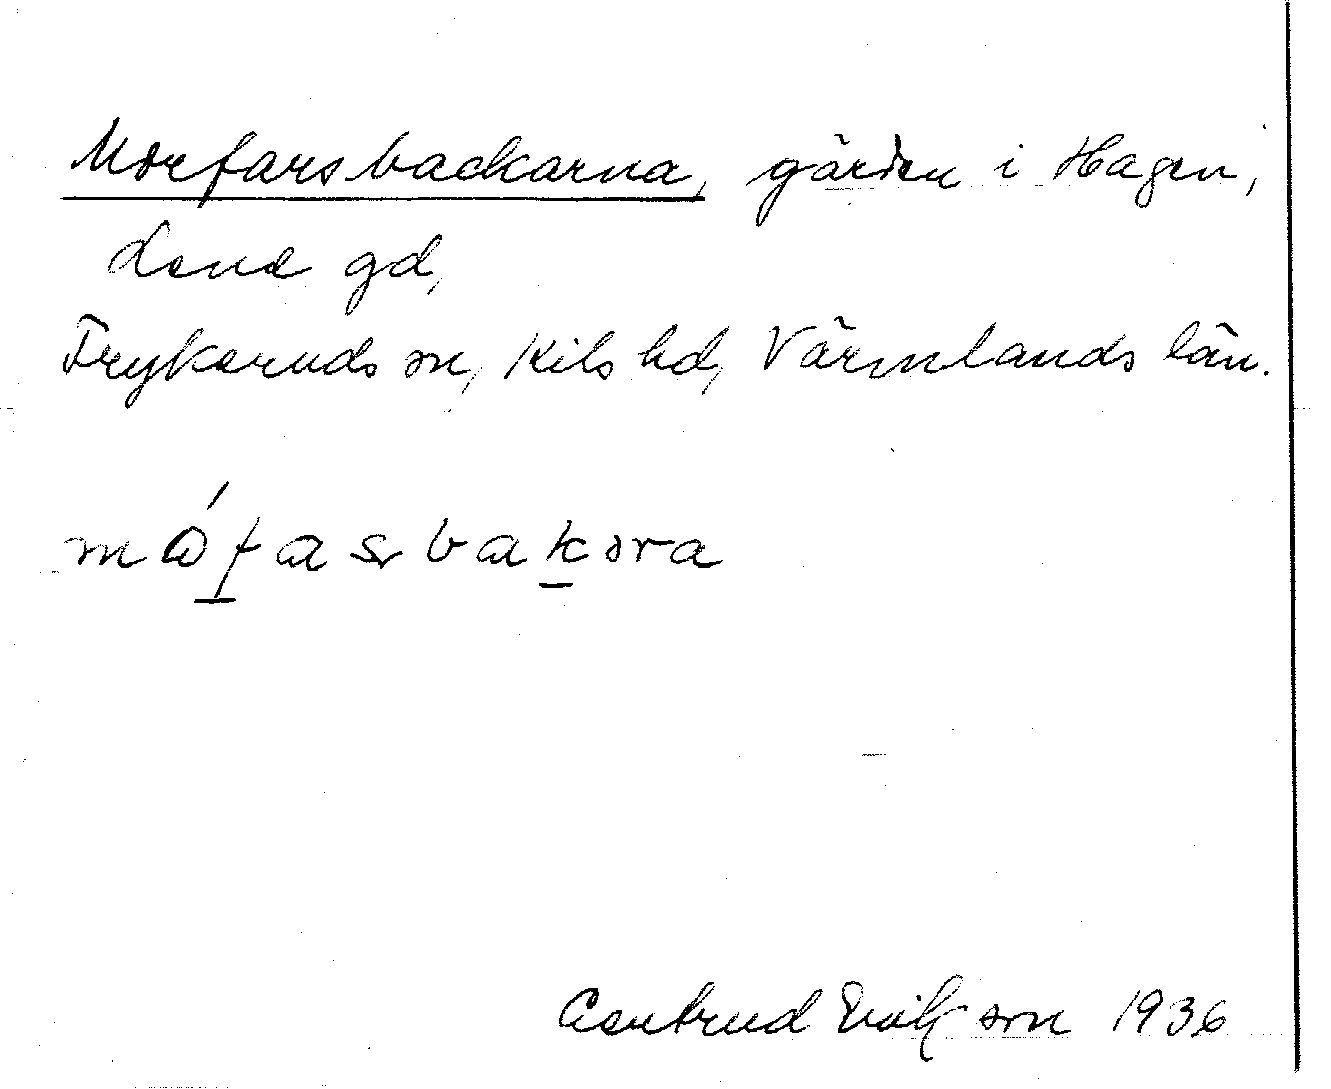 Morfarsbackarna, gärden i Hagen,
Lene gd,
Frykeruds sn, Kils hd, Värmlands län.
mɷ́fasbakəra
Gertrud Erikson 1936